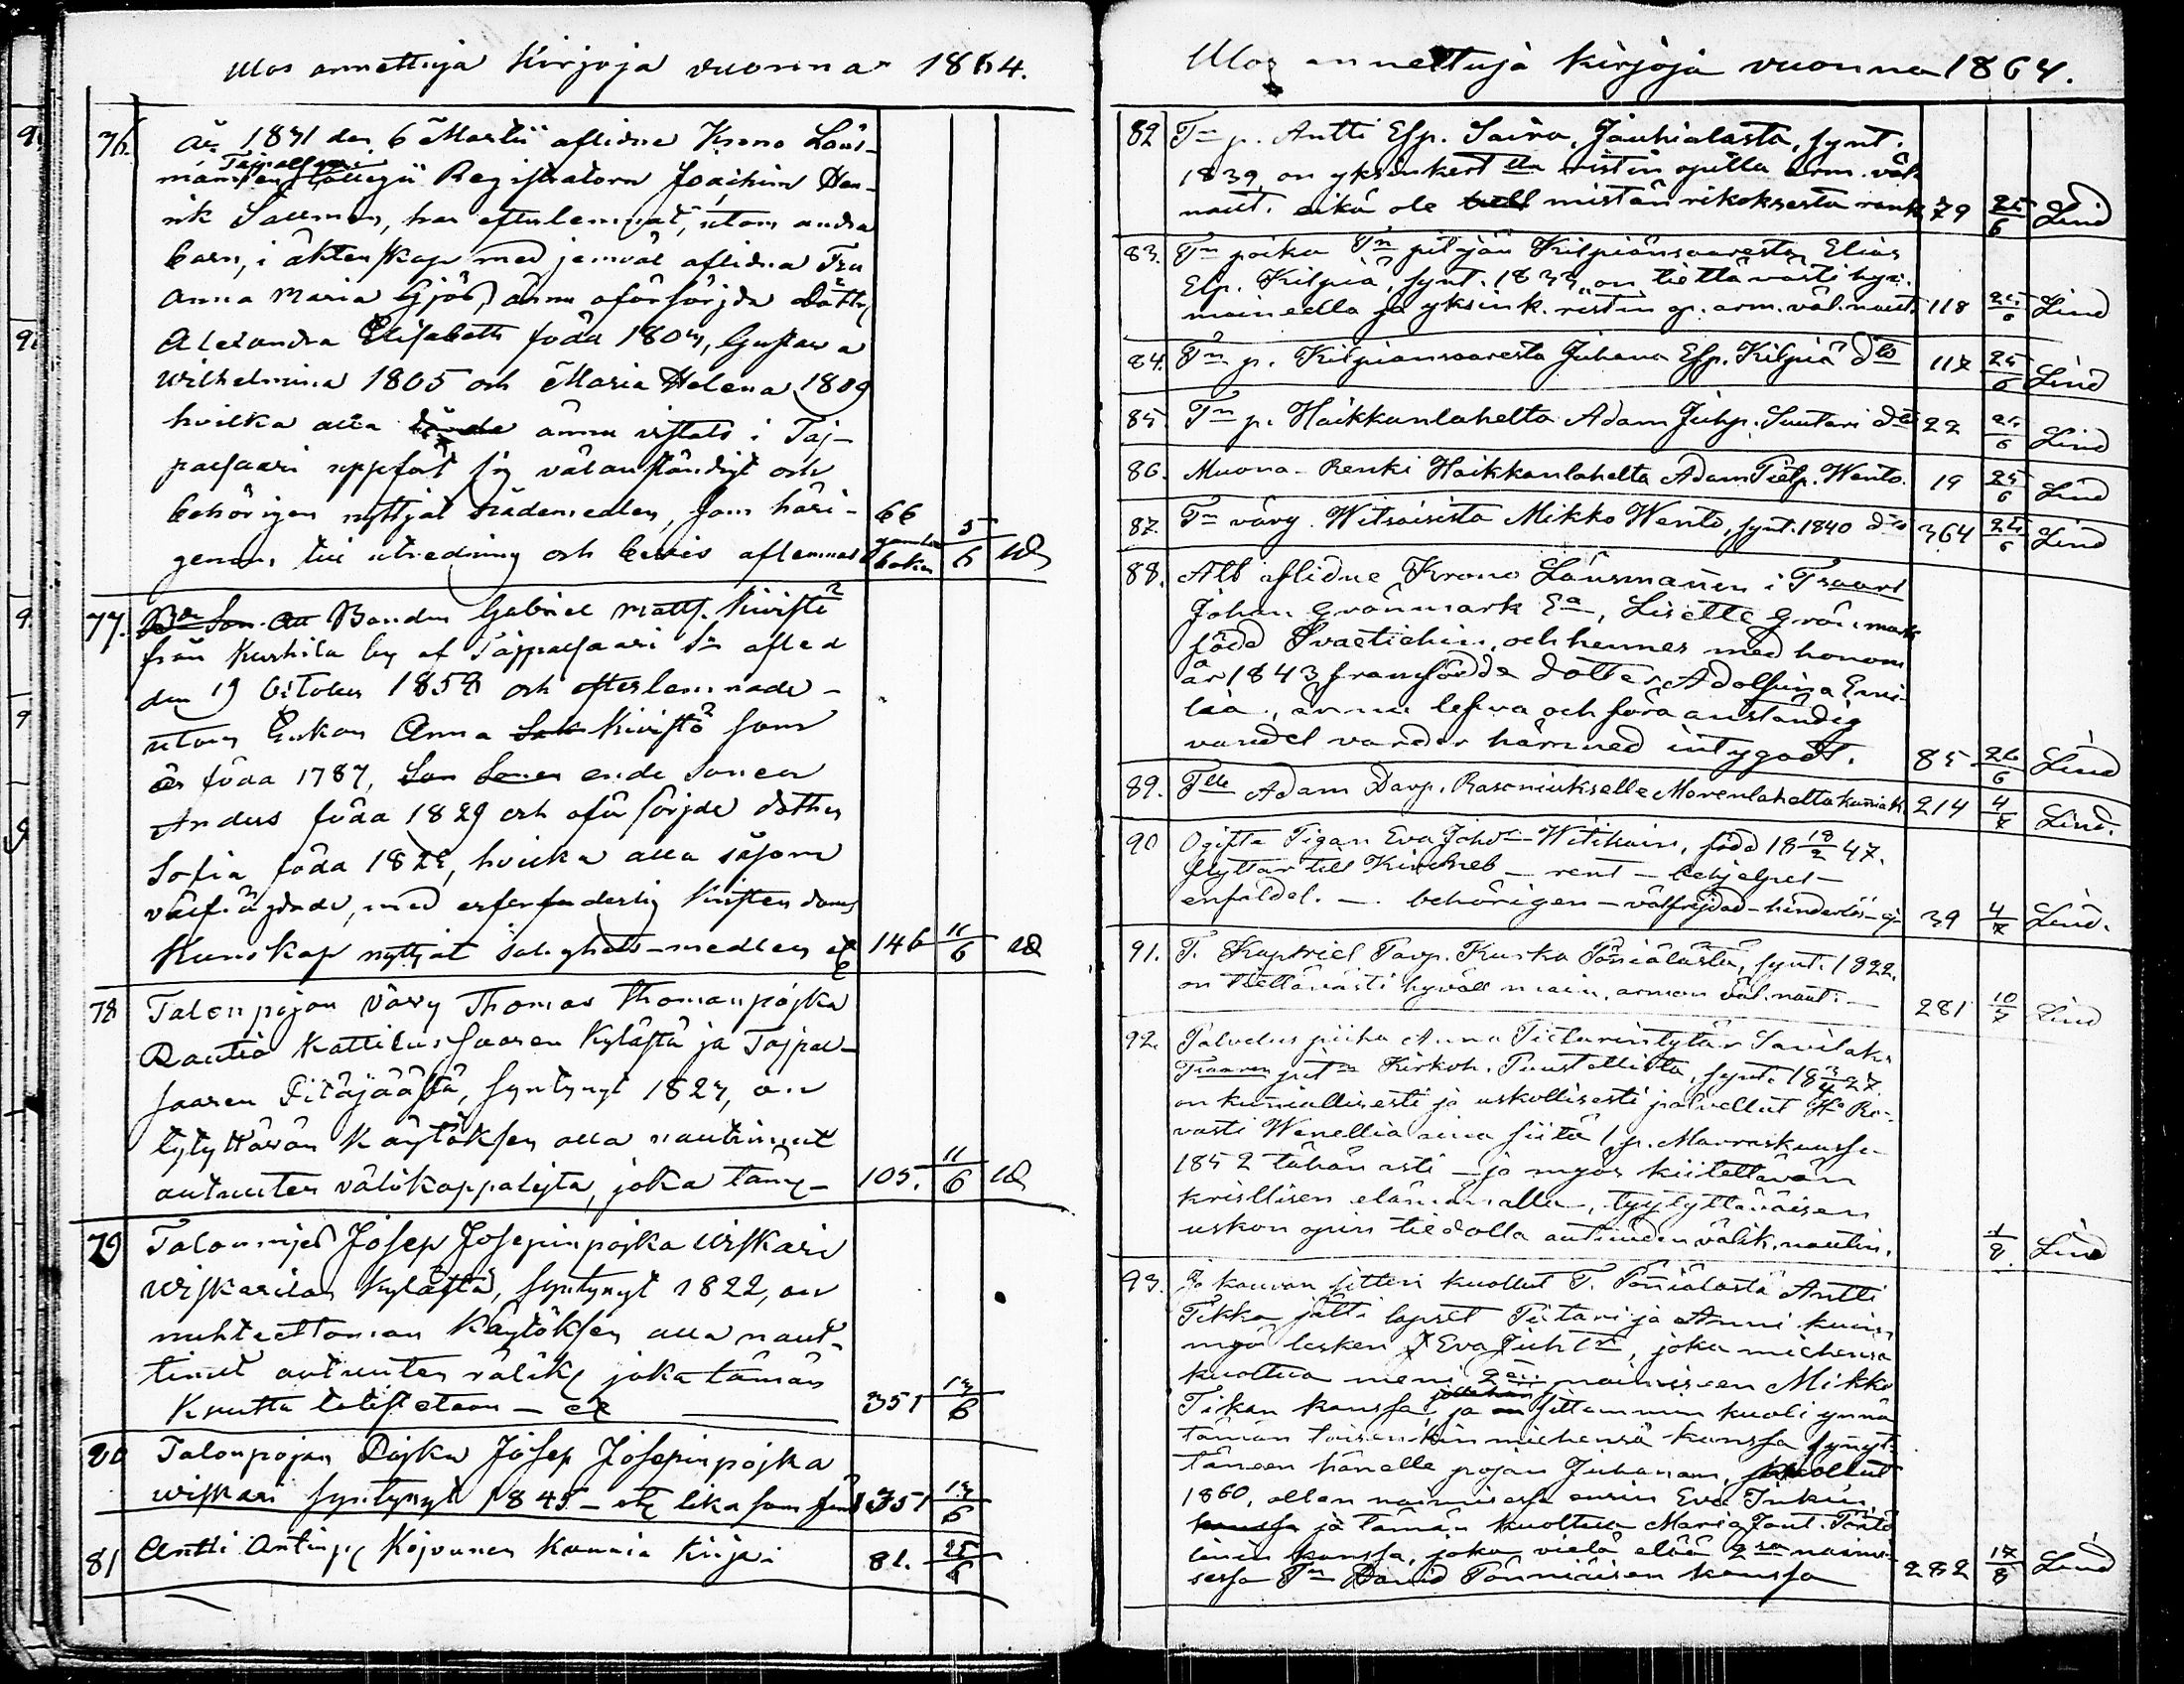 Ulos annettuja Kirjoja vuonna 1864.
76. År 1831 den 6 Martii aflidne Krono Läns-
mannen Collegii Registratorn Joachim Hen-
rik Sallmen, har efterlemnat, utom andra
barn, i äktenskap med jemväl aflidna Fru
Anna Maria Gjös, ännu oförsörjda döttr.
Alexandra Elisabeth föda 1803, Gustava
Wilhelmina 1805 och Maria Helena 1809
hvilka alla ännu vistats i Taj-
palsaari uppfört sig välanständigt och
behörigen nyttjat nådemedlen, som häri- 66
genom till utredning och bevis aflemnas gamla boken 5/6
77. Bonden Gabriel Matts. Kivistö
från Kurkila by af Taipalsaari Sn afled
den 19 October 1858 och efterlemnade
utom Enkan Anna Kivistö som
är föda 1787, enda sonen
Anders föda 1829 och oförsörjde dotter
Sofia föda 1828, hvilka alla såsom
välfrägdade, med erforderlig Kristendoms
Kunskap nyttjat salighets-medlen 146 11/6
78 Talonpojan Vävy Thomas Thomanpojka
Rautio Kattelussaaren Kylästä ja Tajpal-
saaren Pitäjäästä, syntynyt 1827, on
tytyttävän Käytöksen alla nautinnut
autuuten välikappaleita, joka täme- 105. 11/6
79 Talonmjes Josep Josepinpojka Wiskari
Wiskarilan kylästä, syntynyt 1822, on
nuhteettoman Käytöksen alla naut-
tinut autuuten välik joka tämän
Kautta totistetaan - 351 13/6
80 Talonpojan Pojka Josep Josepinpojka
Wiskari syntynyt 1845 - lika som 351 13/6
81 Antti Antinp. Kojvunen Kunnia Kirja 81. 25/6
Ulos annettuja kirjoja vuonna 1864.
82 Tn p. Antti Esp. Saira, Jauhialasta, synt.
1839 on yksinkert lla ristin opilla arm. väl.
naut. eikä ole mistän rikoksesta rank. 79 25/6 Lind
83. Tn poika Tn pitäjän Kilpiänsaaresta Elias
Esp. Kilpiä, synt. 1833, on tiettävästi hyv.
maineella ja yksink. ristin op. arm. väl. naut. 118 25/6 Lind
84. Tn p. Kilpiänsaaresta Juhana Esp. Kilpiä dto 117 25/6 Lind
85. Tn p. Haikkanlahelta Adam Juhp. Suutari dto 22 25/6 Lind
86. Muona-Renki Haikkanlahelta Adam Wento. 19 25/6 Lind
87. Tn vävy Witsaisista Mikko Wento, synt. 1840 dto 364 25/6 Lind
88. Att aflidne Krono Länsmannen i
Johan Grönmark Ea, Lisette Grönmark
född Svaetichin, och hennes med honom
år 1843 framfödde dotter Adolfina Emi-
lia, ännu lefva och föra anständig
vandel varder härmed intygadt. 85 26/6 Lind
89. Tlle Adam Davp. Rasoniukselle Monenlahelta kuniak. 214 4/7 Lind.
90 Ogifta Pigan Eva Johdr Witikain, född 18 18/2 47.
flyttar till Kirchneb - rent - behjelpel -
enfaldel. - behörigen - välfrejdad - hinderlös - 39 4/7 Lind.
91. T. Kaptriel Pavp. Kurko Pöniälästä, synt. 1822.
on tiettävästi hyväll main. armon väl. naut. - 281 10/7 Lind
92. Palvelus piika Anna Pietarintytär Savilak.
pit Kirkoh. Puustellista, synt. 18 3/4 27.
on kuniallisesti ja uskollisesti palvellut Ro-
vasti Wenellia aina siitä 1 p. Marraskuusse
1852 tähän asti - ja myös kiitettävän
kristlisen elämän alla, tyytyttäväisen
uskon opin tiedolla autuuden välik. nautin. 1/8 Lind
93. Jo kauvan sitten kuollut T. Pöniälästä Antti
Tikka jätti lapset Pietari ja Anni kuin
myö lesken Eva Juhtr, joka miehensä
kuoltua meni 2:en naimiseen Mikko
Tikan kanssa, ja sittemmin kuoli ynnä
tämän toisenkin miehensä kanssa synnyt-
täneen hänelle pojan Juhanan,
1860, ollen naimisessa ensin Eva Inkin,
ja tämän kuoltua Maria Jant.
kanssa, joka vielä elää 2 sa naimi-
sessa Tn David Pönniäisen kanssa 282 17/8 Lind